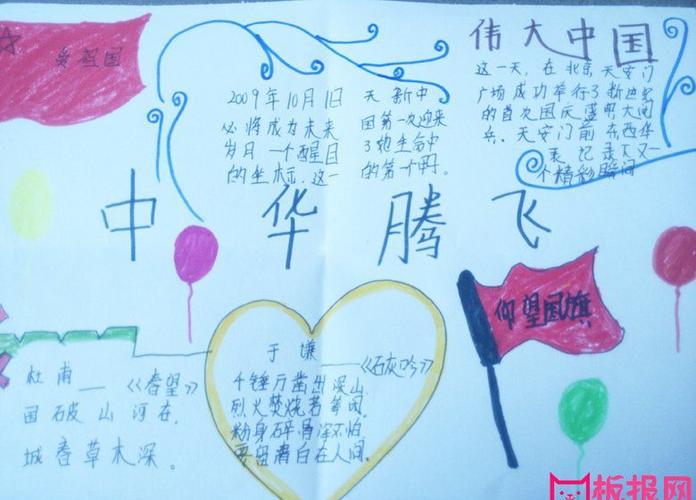 爱祖国
伟大中国
2009年10月1日
必将成为未来
岁月一个醒目
的坐标.这一
天新中
国第一次迎来
了她生命中
的第一个甲.
这一天，在北京天安门
广场成功举行了新世纪
的首次国庆盛大阅
兵。天安门前东西华
表记录下又一
个精彩瞬间
中华腾飞
仰望国旗
杜甫——《春望》
国破山河在，
城春草木深。
于谦——《石灰吟》
千锤万凿出深山
烈火焚烧若等闲，
粉身碎骨浑不怕
要留清白在人间。
板报网